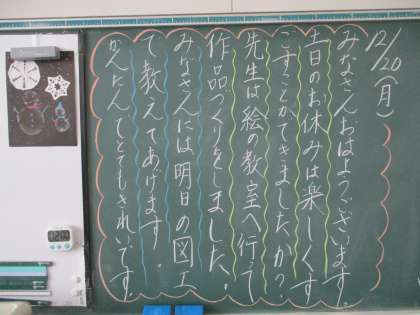 12/20(月)
みなさんおはようございます。
土日のお休みは楽しくす
ごすことができましたか?
先生は絵の教室へ行って
作品づくりをしました。
みなさんには明日の図工
で教えてあげます
かんたんでとてもきれいです。